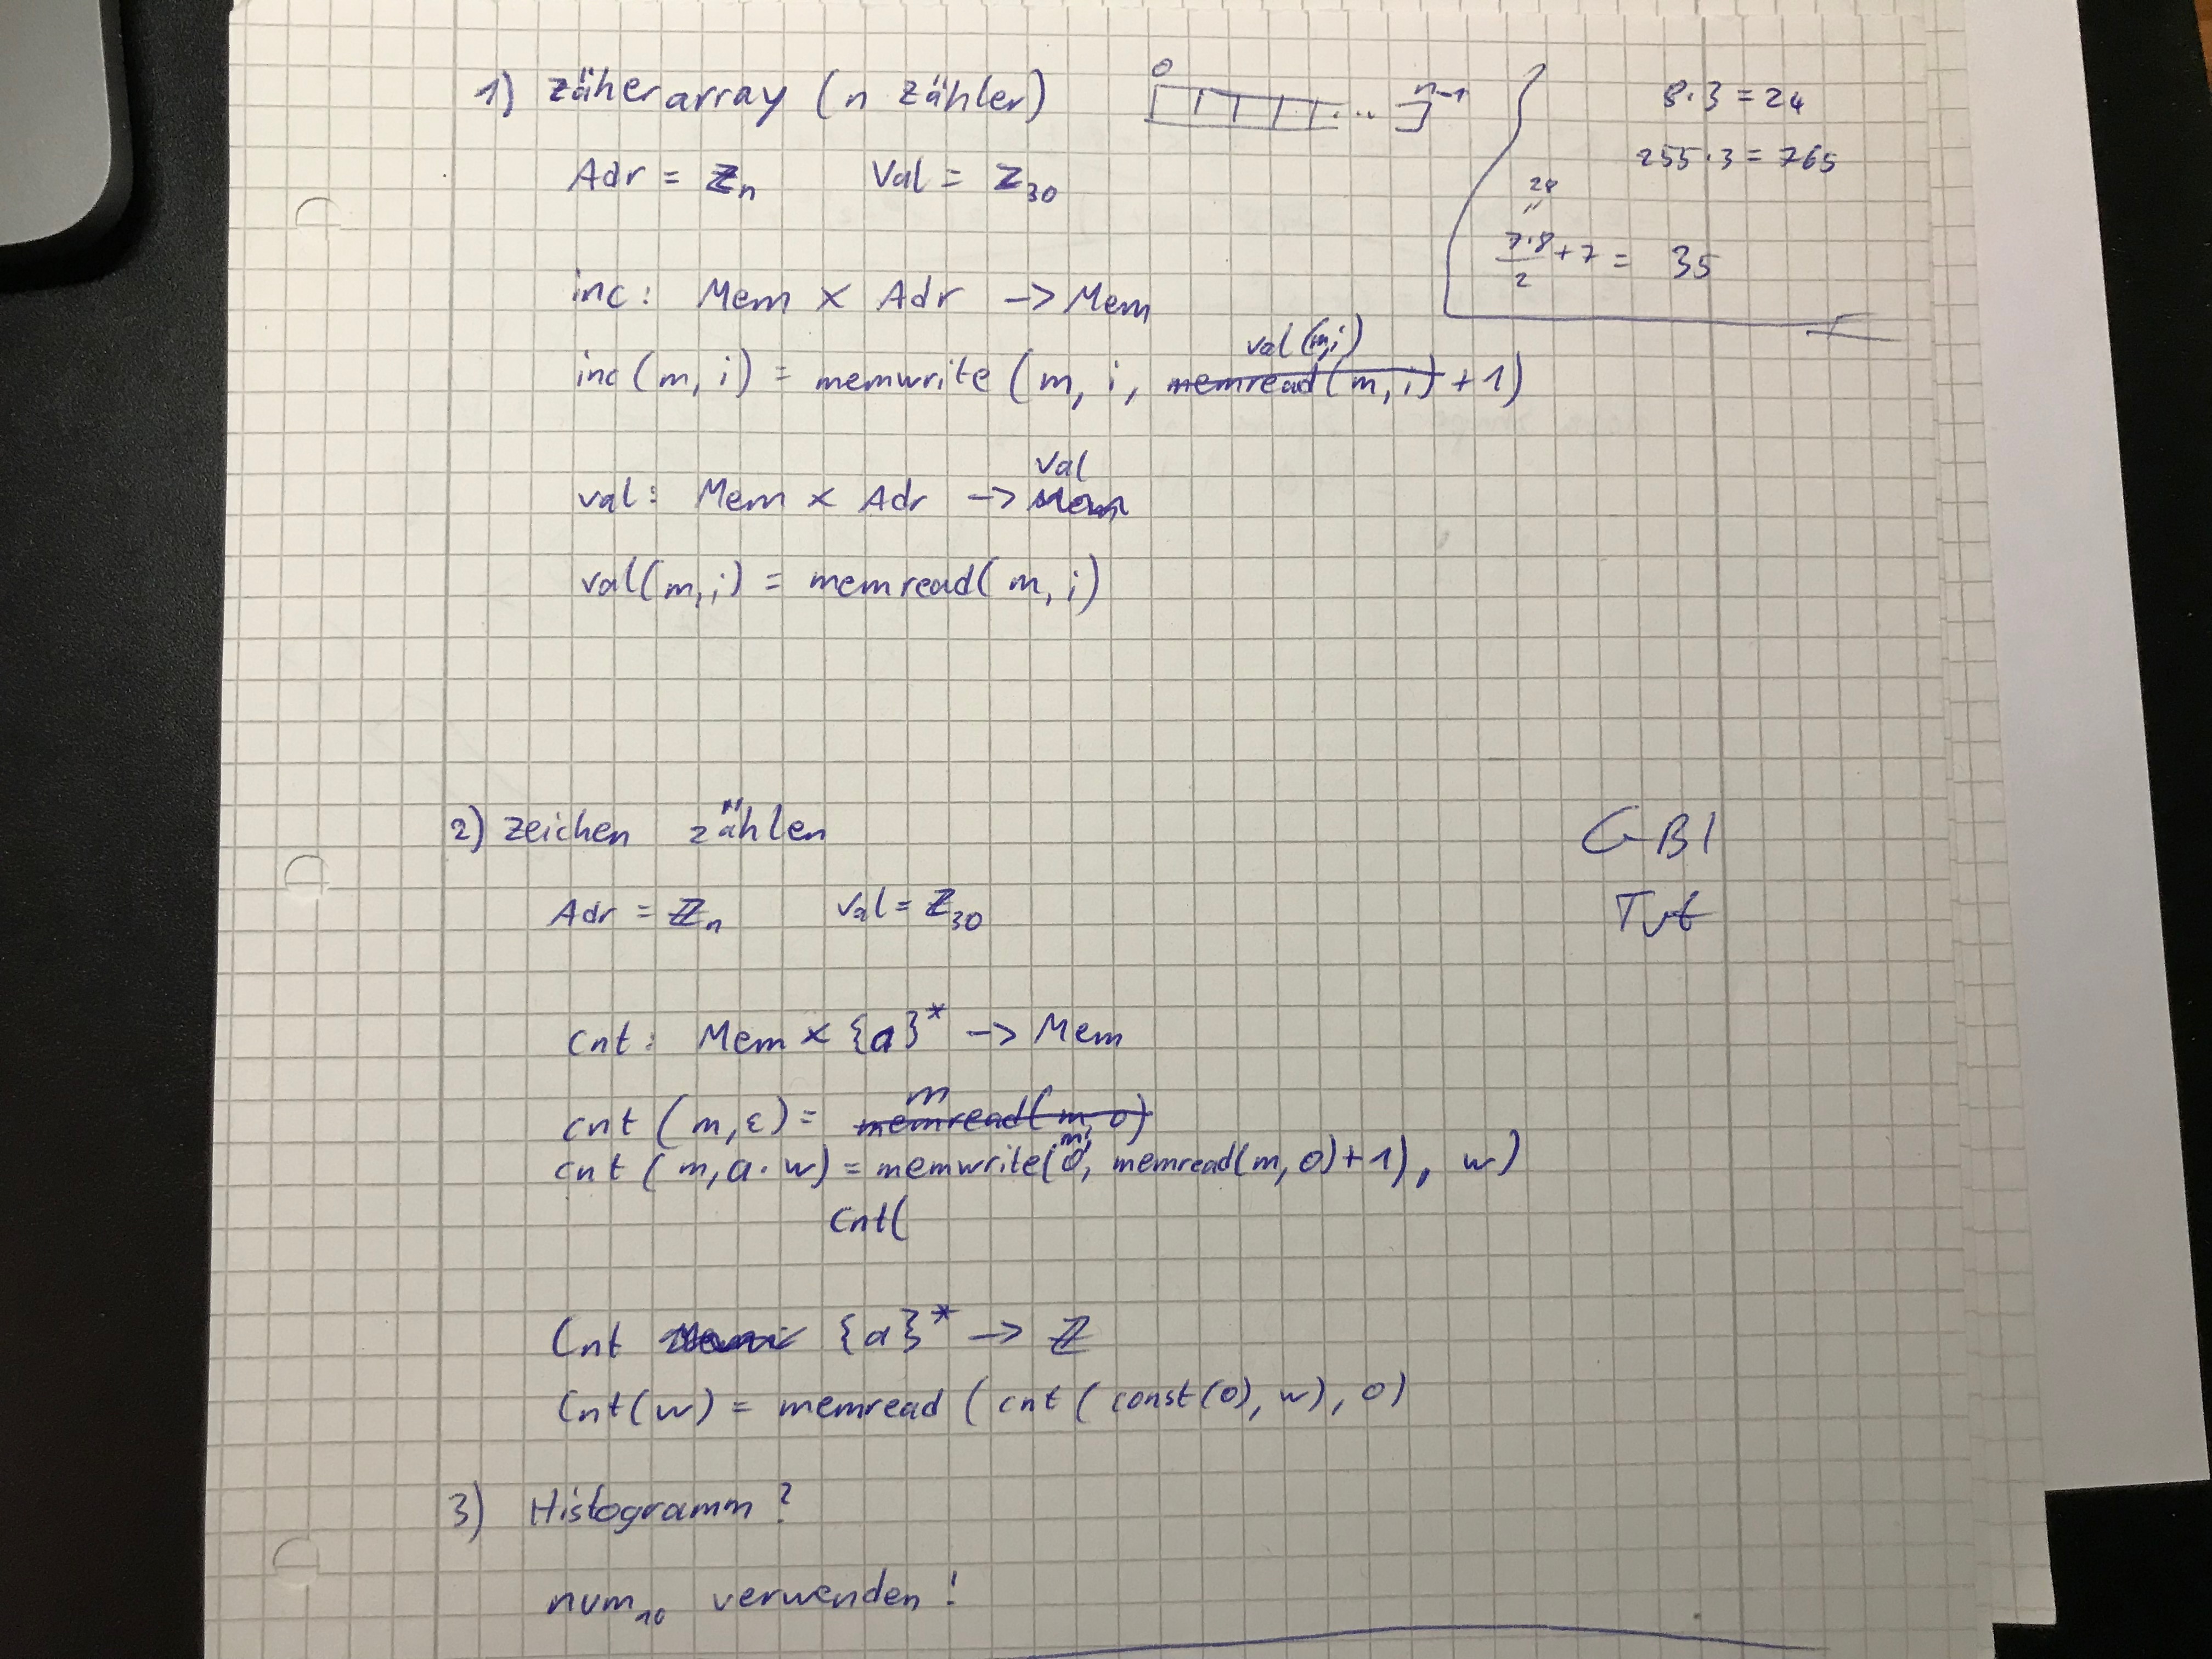 1) Zäherarray (n Zähler)
0
n-1
...
Adr = ℤn Val = ℤ30
8·3 = 24
255·3 = 765
28
"
7·8/2 + 7 = 35
inc: Mem × Adr -> Mem
val(m,i)
inc(m, i) = memwrite (m, i, memread(m, i) + 1)
Val
val: Mem × Adr -> Mem
val(m,i) = memread(m, i)
2) Zeichen zählen
GBI
Tut
Adr = ℤn Val = ℤ30
cnt: Mem × {a}* -> Mem
m
cnt (m,ε) = memread(m, 0)
m,
cnt (m,a·w) = memwrite(0, memread(m,0)+1), w)
cnt(
Cnt {a}* -> ℤ
Cnt(w) = memread (cnt (const(0), w), 0)
3) Histogramm?
num10 verwenden!